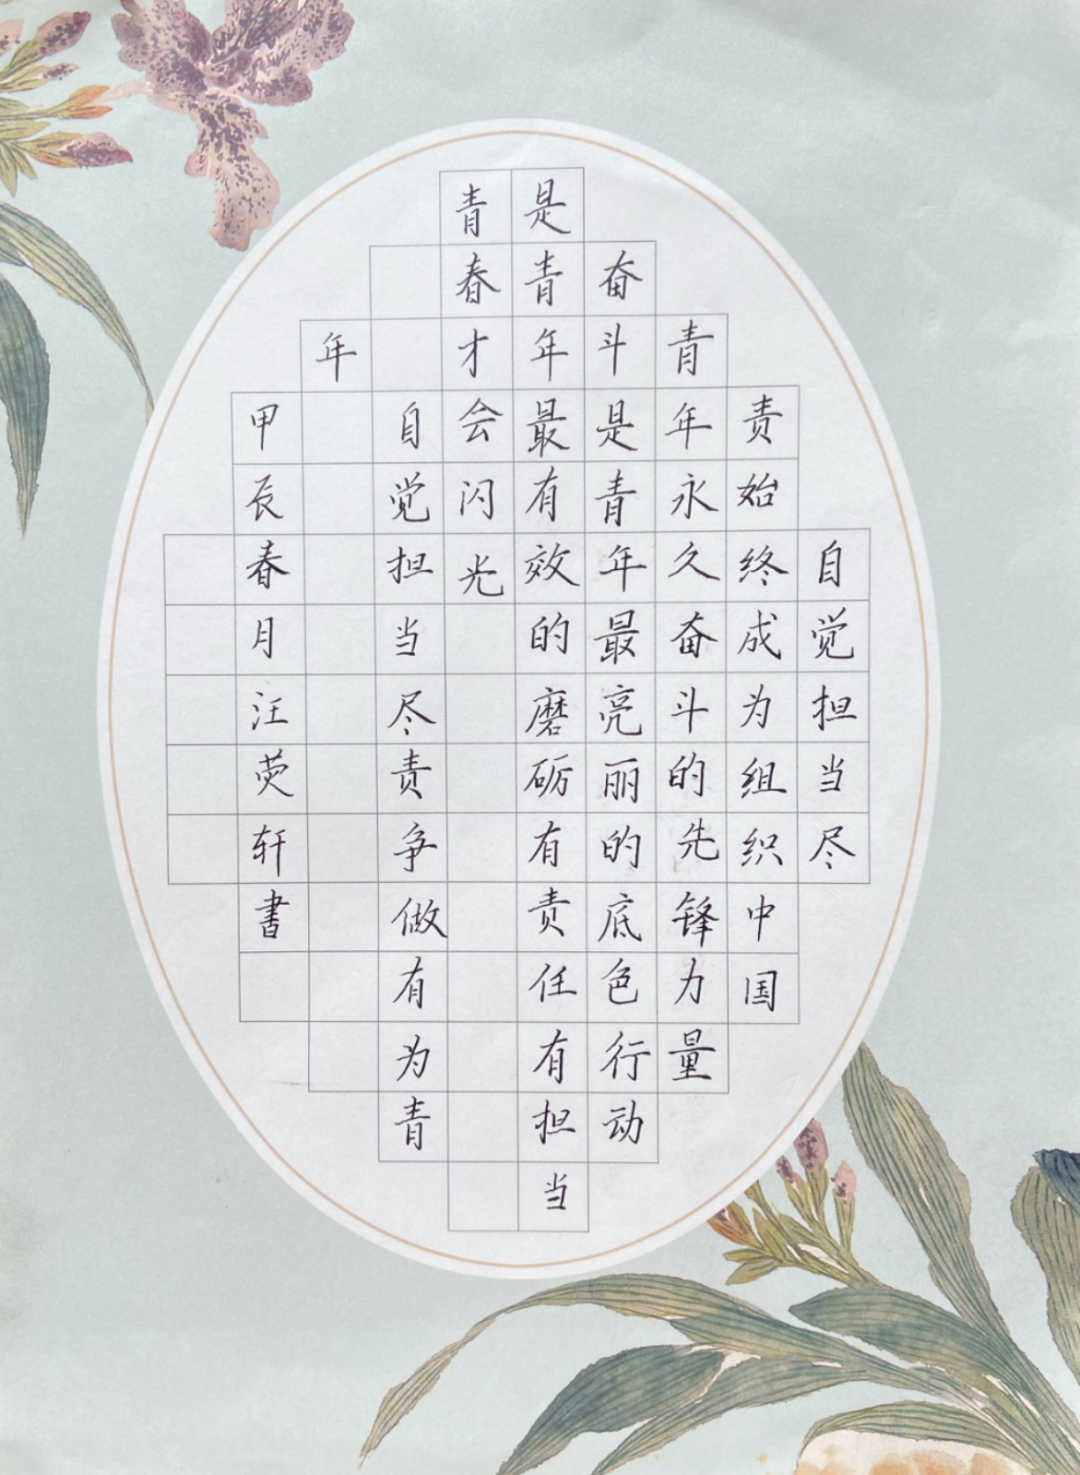 自觉担当尽
责始终成为组织中国
青年永久奋斗的先锋力量
奋斗是青年最亮丽的底色行动
是青年最有效的磨砺有责任有担当
青春才会闪光
自觉担当尽责争做有为青
年
甲辰春月汪荧轩書